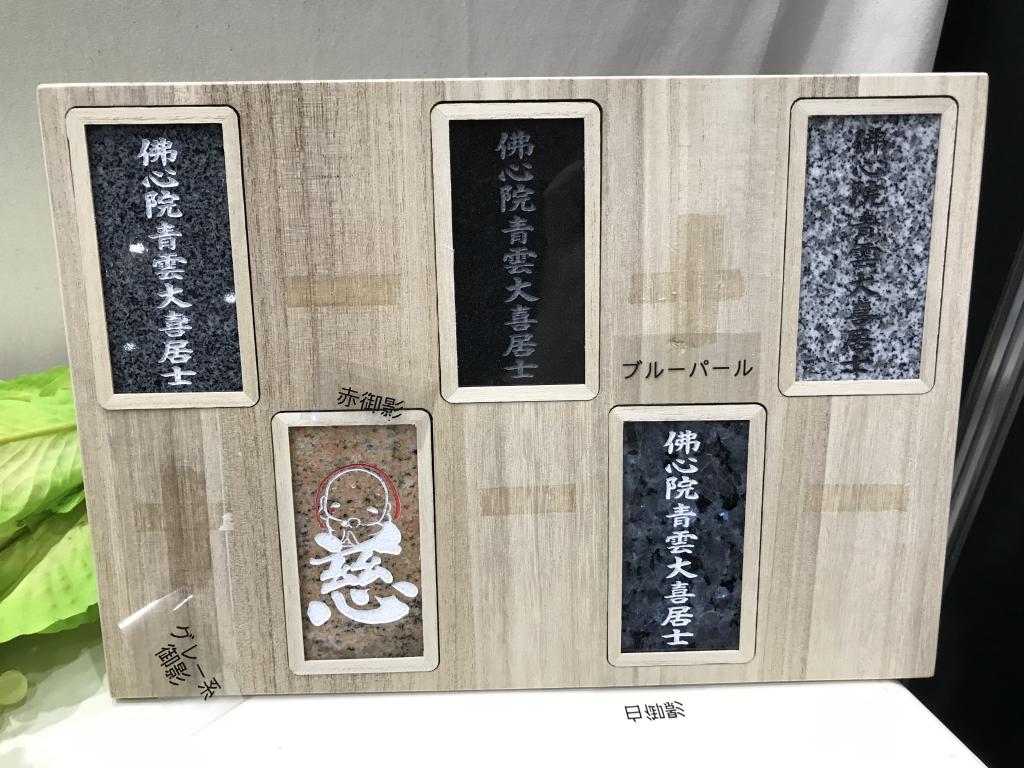 佛心院青雲大喜居士
佛心院青雲大喜居士
佛心院青雲大喜居士
ブルーパール
赤御影
慈
佛心院青雲大喜居士
グレー系
御影
白御影